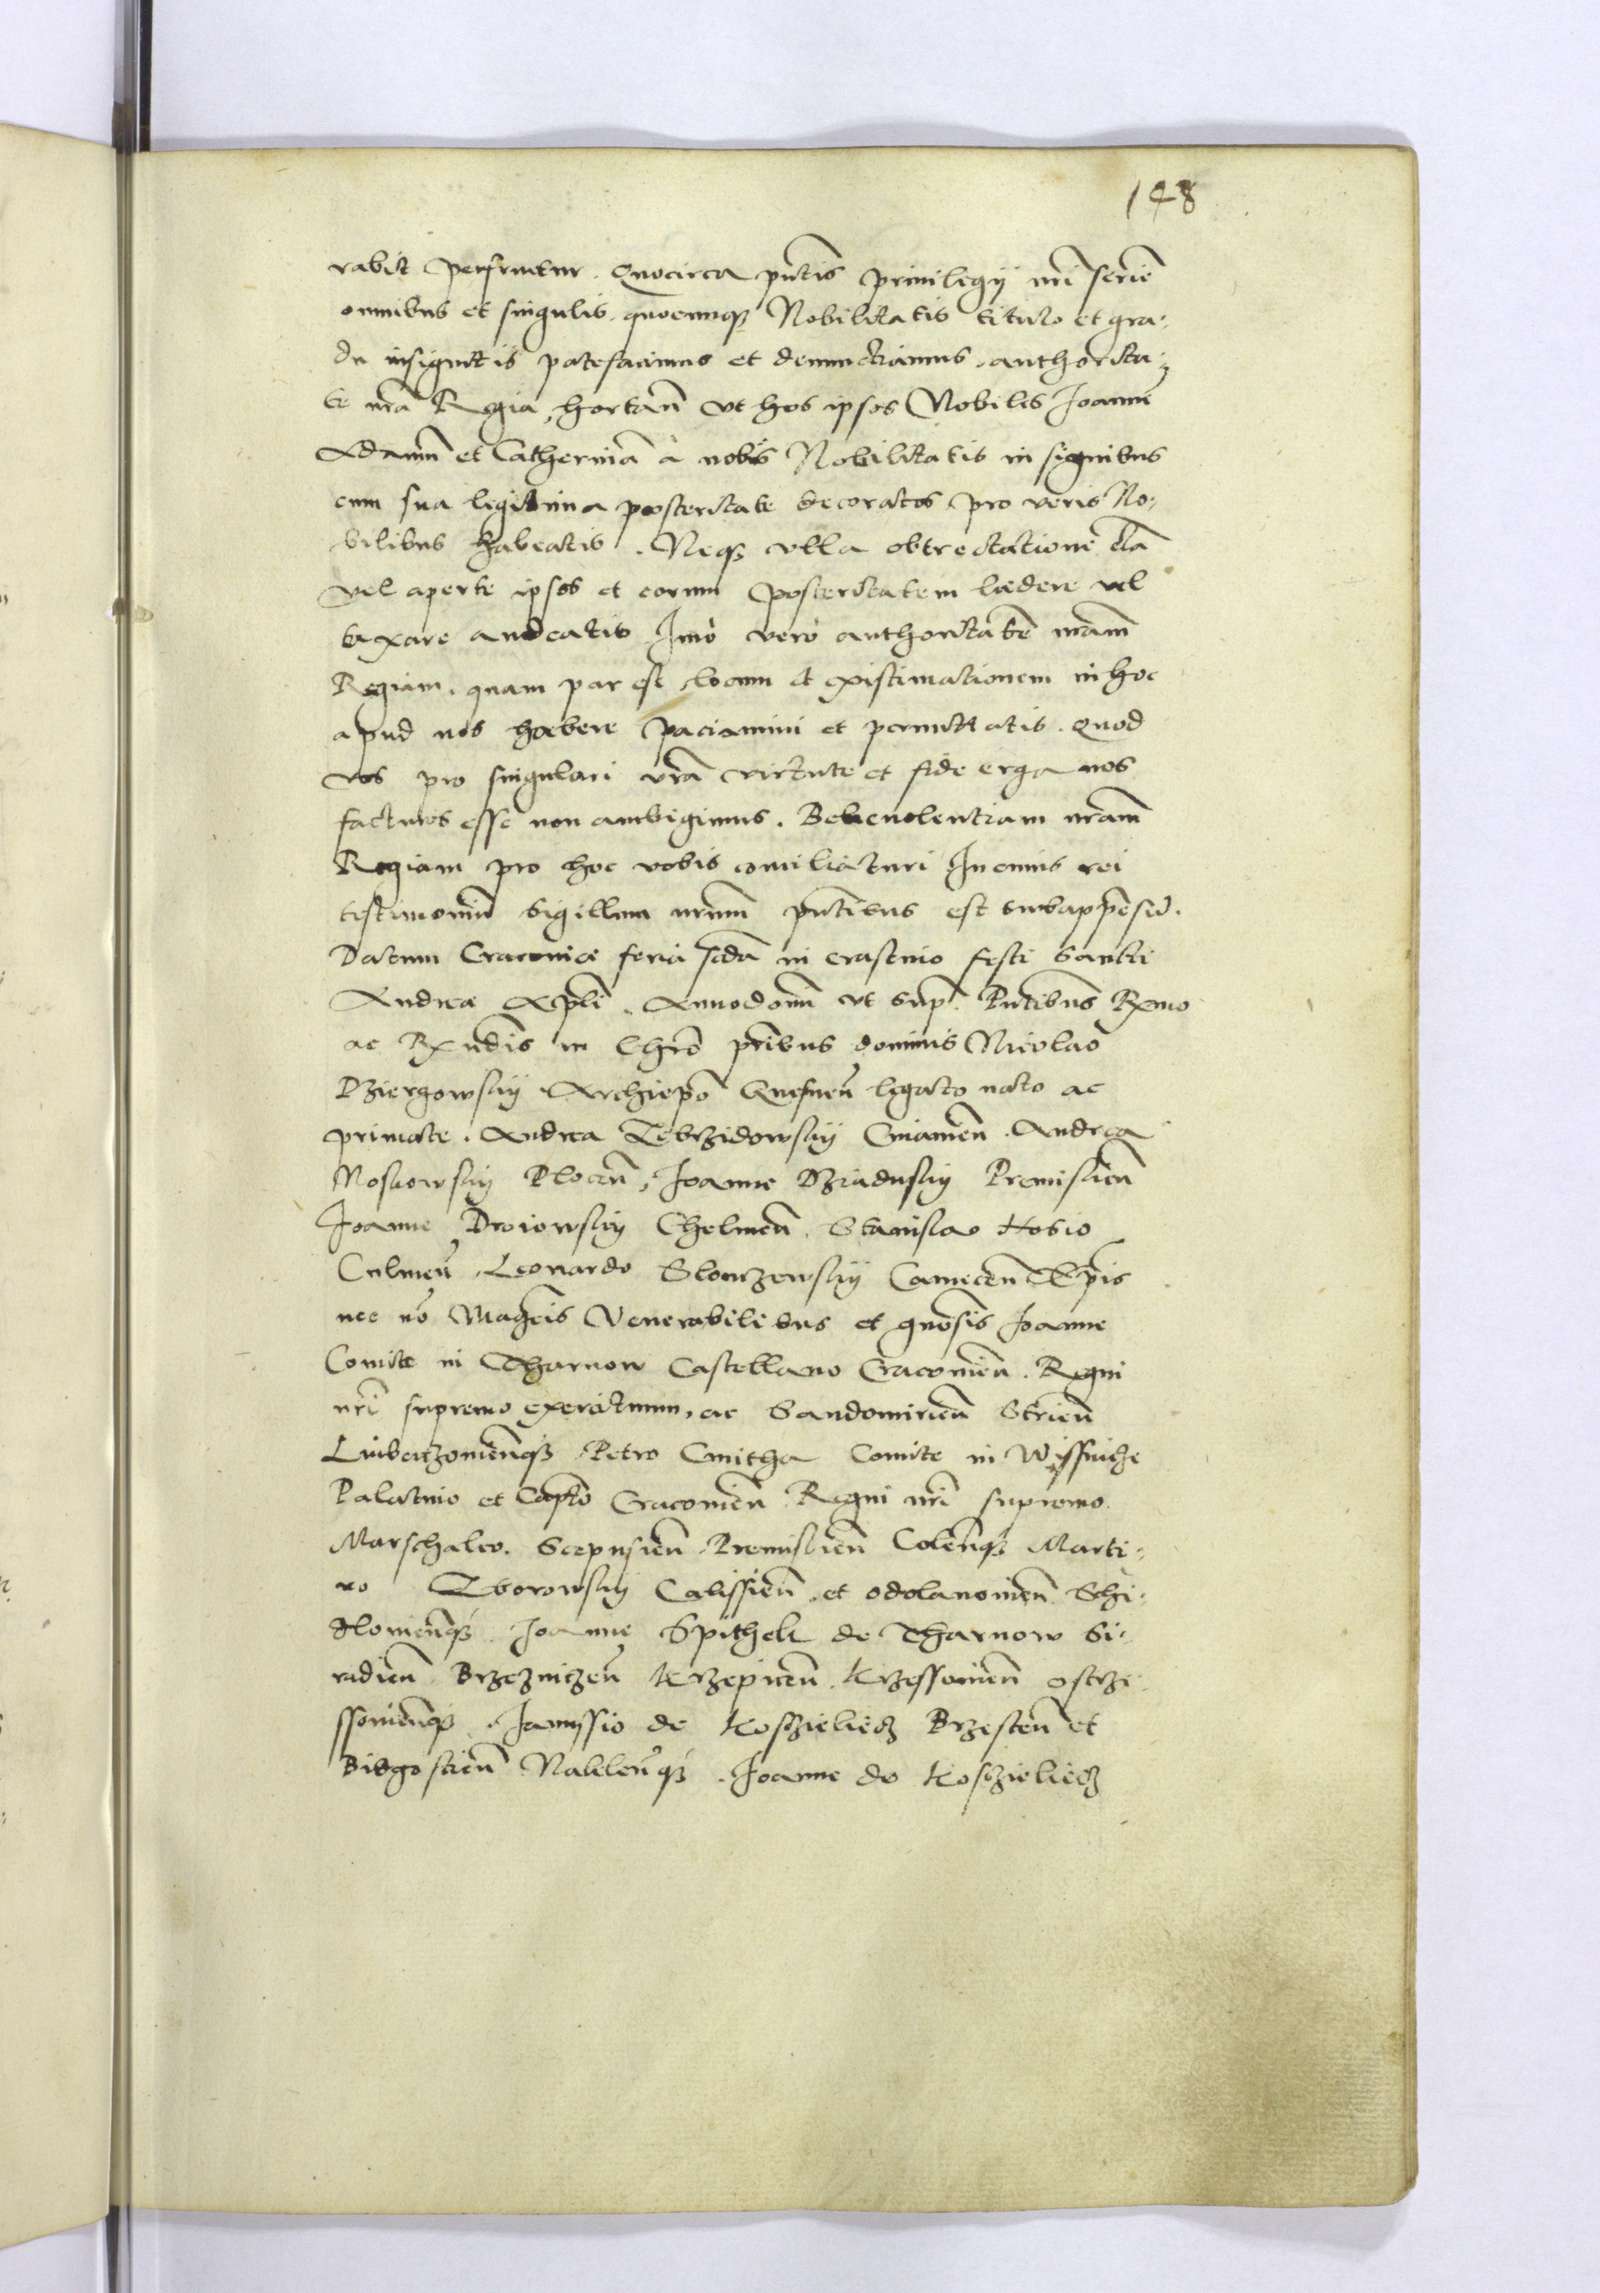 148
rabit perfruetur. Quocirca pñtis priuilegij nrĩ seriẽ
omnibus et singulis, quocunq₃ Nobilitatis titulo et gra-
du insignitis patefacimus et denunctiamus, authorita-
te nrã Regia, hortañ vt hos ipsos Nobiles Joannẽ
Adamũ et Catherinã à nobis Nobilitatis insignibus
cum sua legitima posteritate decoratos pro veris No-
bilibus habeatis. Neq₃ vlla obtrectatione clã
vel aperte ipsos et eorum posteritatem lædere vel
taxare audeatis Imò verò authoritatẽ nrãm
Regiam, quam par est, locum et existimationem in hoc
apud uos habere paciamini et permittatis. Quod
vos pro singulari vrã virtute et fide erga nos
facturos esse non ambigimus. Beneuolentiam nrãm
Regiam pro hoc vobis conciliaturi In cuius rei
testimoniũ Sigillum nrũm pñtibus est subappẽsũ.
Datum Cracouiæ feria scdã in crastino festi Sancti
Andreæ Apli. Anno domĩ vt sup̃. Pñtibus Rxmo
ac Rxñdis in Chrõ prĩbus dominis Nicolao
Dziergowskij Archiepõ Gnesneñ legato nato ac
primate. Andrea Zebrzidowskij Cracouieñ. Andrea
Noskowskij Ploceñ, Joanne Dziaduskij Premislieñ
Joanne Droiowskij Chelmeñ. Stanislao Hosio
Culmeñ, Leonardo Slonczewskij Cameceñ Epĩs
nec nõ Magcĩs Venerabilibus et gnõsis Joanne
Comite in Tharnow Castellano Cracouieñ. Regni
nrĩ supremo exercituum, ac Sandomirieñ Strieñ
Lubaczouieñq₃ Petro Cmitha Comite in Wissnicze
Palatino et Captõ Cracouieñ Regni nrĩ supremo
Marschalco. Scepusieñ Premislieñ Coleñq₃ Marti-
no Zborowskij Calissieñ, et odolanouieñ Schi-
dlouieñq₃ Joanne Spithek de Tharnow Si-
radieñ Brzezniczeñ Krzepiceñ Krzessouieñ ostrzi
ssouieñq₃. Janussio de Koszczielicz Brzesteñ et
Bidgostieñ Nakleñq₃. Joanne de Koszczielicz